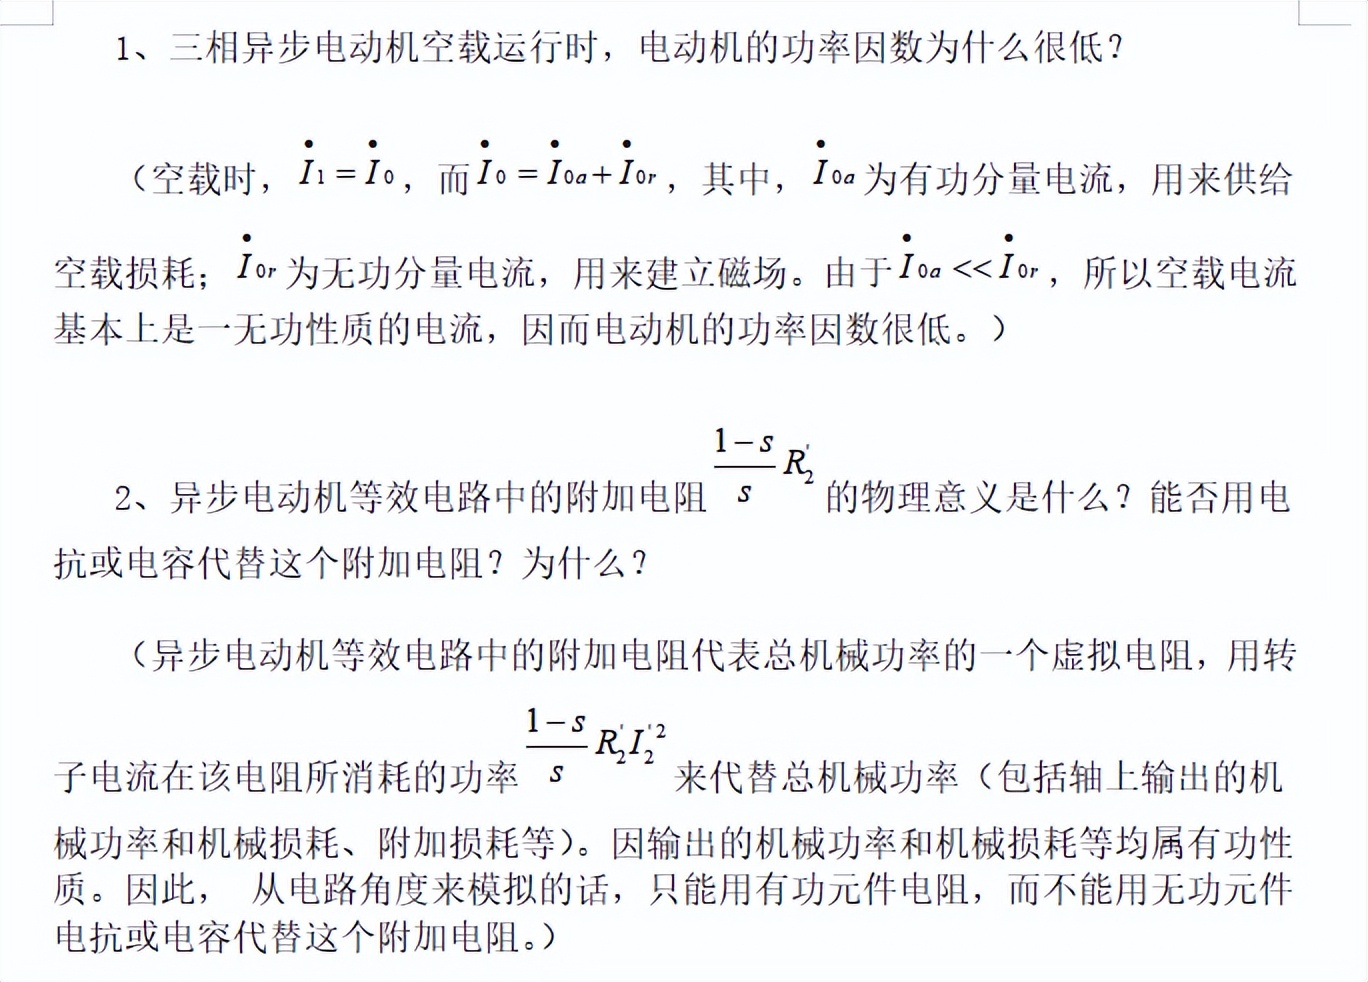 1、三相异步电动机空载运行时，电动机的功率因数为什么很低？
（空载时，İ₁＝İ₀，而İ₀＝İ₀ₐ+İ₀ᵣ，其中，İ₀ₐ为有功分量电流，用来供给
空载损耗；İ₀ᵣ为无功分量电流，用来建立磁场。由于İ₀ₐ<<İ₀ᵣ，所以空载电流
基本上是一无功性质的电流，因而电动机的功率因数很低。）
2、异步电动机等效电路中的附加电阻 (1−s)/s R₂' 的物理意义是什么？能否用电
抗或电容代替这个附加电阻？为什么？
（异步电动机等效电路中的附加电阻代表总机械功率的一个虚拟电阻，用转
子电流在该电阻所消耗的功率 (1−s)/s R₂'I₂'² 来代替总机械功率（包括轴上输出的机
械功率和机械损耗、附加损耗等）。因输出的机械功率和机械损耗等均属有功性
质。因此， 从电路角度来模拟的话，只能用有功元件电阻，而不能用无功元件
电抗或电容代替这个附加电阻。）